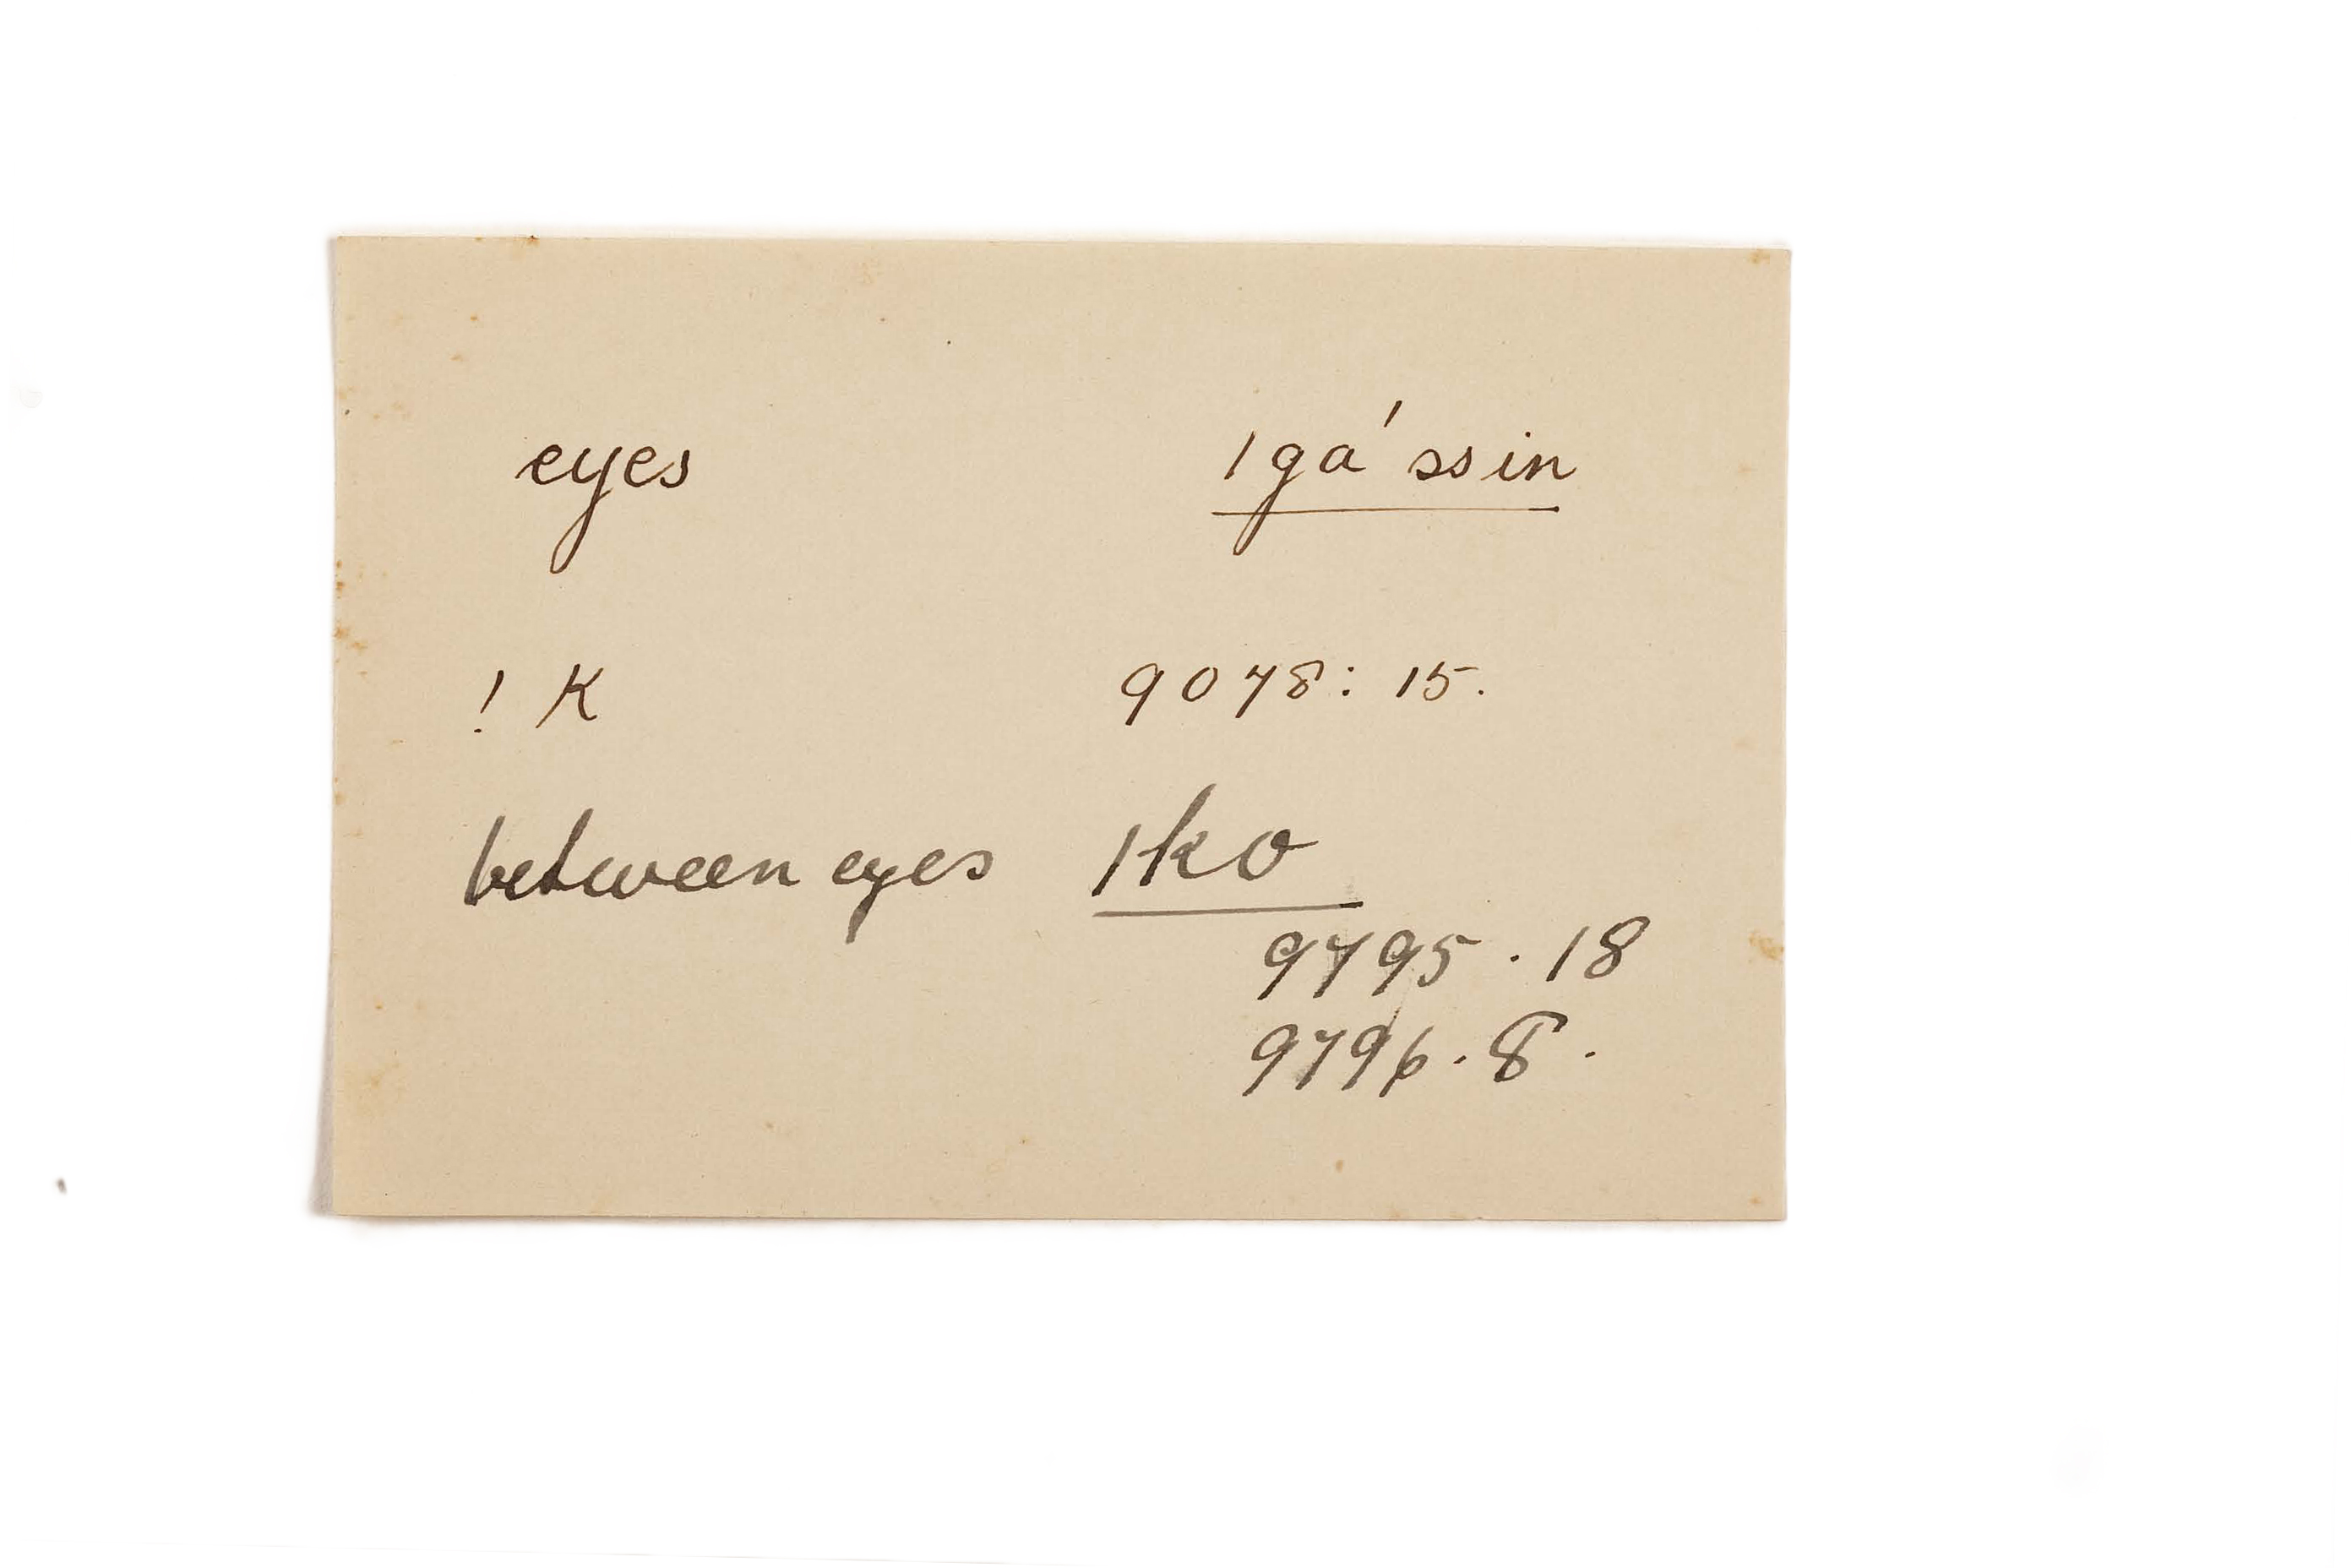 eyes ǀgá ssin
! K 9078: 15.
between eyes ǀko
9795 . 18
9796 . 8 .